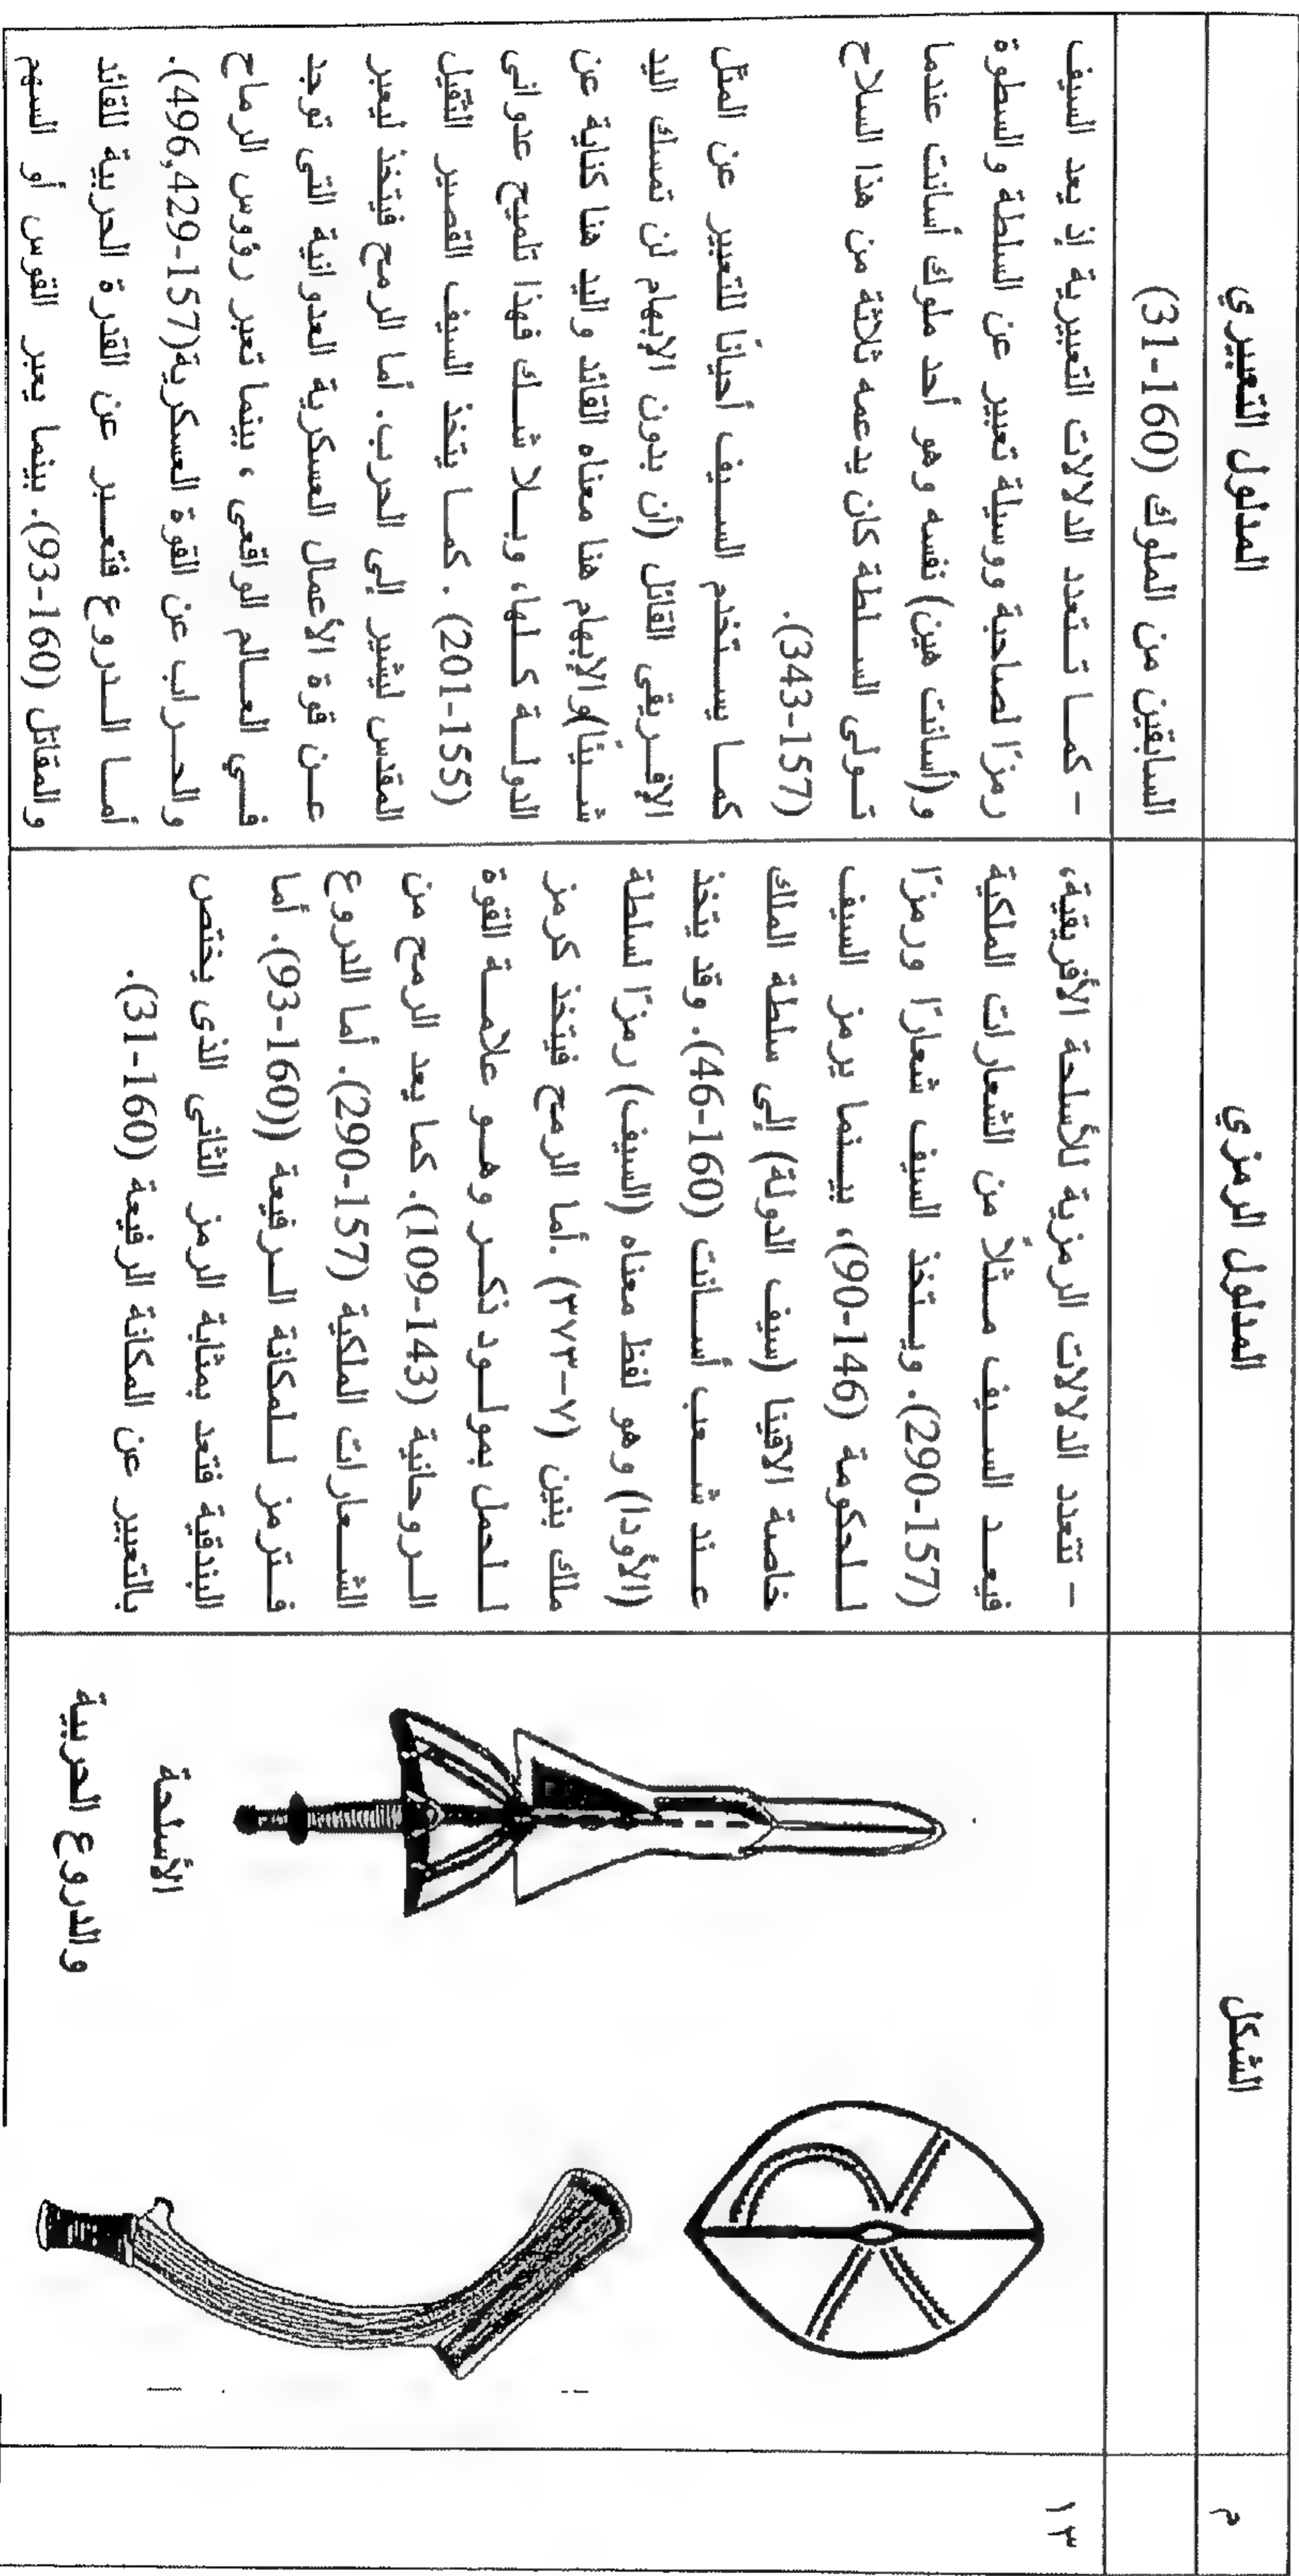 م
الشكل
المدلول الرمزي
المدلول التعبيري
السابقين من الملوك (160-31)
١٣
الأسلحة
والدروع الحربية
- تتعدد الدلالات الرمزية للأسلحة الأفريقية،
فيعد السيف مثلاً من الشعارات الملكية
(157-290). ويتخذ السيف شعارًا ورمزًا
للحكومة (146-90)، بينما يرمز السيف
خاصة الافينا (سيف الدولة) إلى سلطة الملك
عند شعب أسانت (160-46). وقد يتخذ
(الأودا) وهو لفظ معناه (السيف) رمزًا لسلطة
ملك بنين (٧-٣٧٣). أما الرمح فيتخذ كرمز
للحمل بمولود ذكر وهو علامة القوة
الروحانية (143-109). كما يعد الرمح من
الشعارات الملكية (157-290). أما الدروع
فترمز للمكانة الرفيعة ((160-93). أما
البندقية فتعد بمثابة الرمز الثانى الذى يختص
بالتعبير عن المكانة الرفيعة (160-31).
- كما تتعدد الدلالات التعبيرية إذ يعد السيف
رمزًا لصاحبة ووسيلة تعبير عن السلطة والسطوة
و(أسانت هين) نفسه وهو أحد ملوك أسانت عندما
تولى السلطة كان يدعمه ثلاثة من هذا السلاح
(157-343).
كما يستخدم السيف أحيانًا للتعبير عن المثل
الإفريقى القائل (أن بدون الابهام لن تمسك اليد
شيئًا)والإبهام هنا معناه القائد واليد هنا كناية عن
الدولة كلها، وبلا شك فهذا تلميح عدوانى
(155-201). كما يتخذ السيف القصير الثقيل
المقدس ليشير إلى الحرب. أما الرمح فيتخذ ليعبر
عن قوة الأعمال العسكرية العدوانية التى توجد
في العالم الواقعى ، بينما تعبر رؤوس الرماح
والحراب عن القوة العسكرية(157-496,429).
أما الدروع فتعبر عن القدرة الحربية للقائد
والمقاتل (160-93). بينما يعبر القوس أو السهم